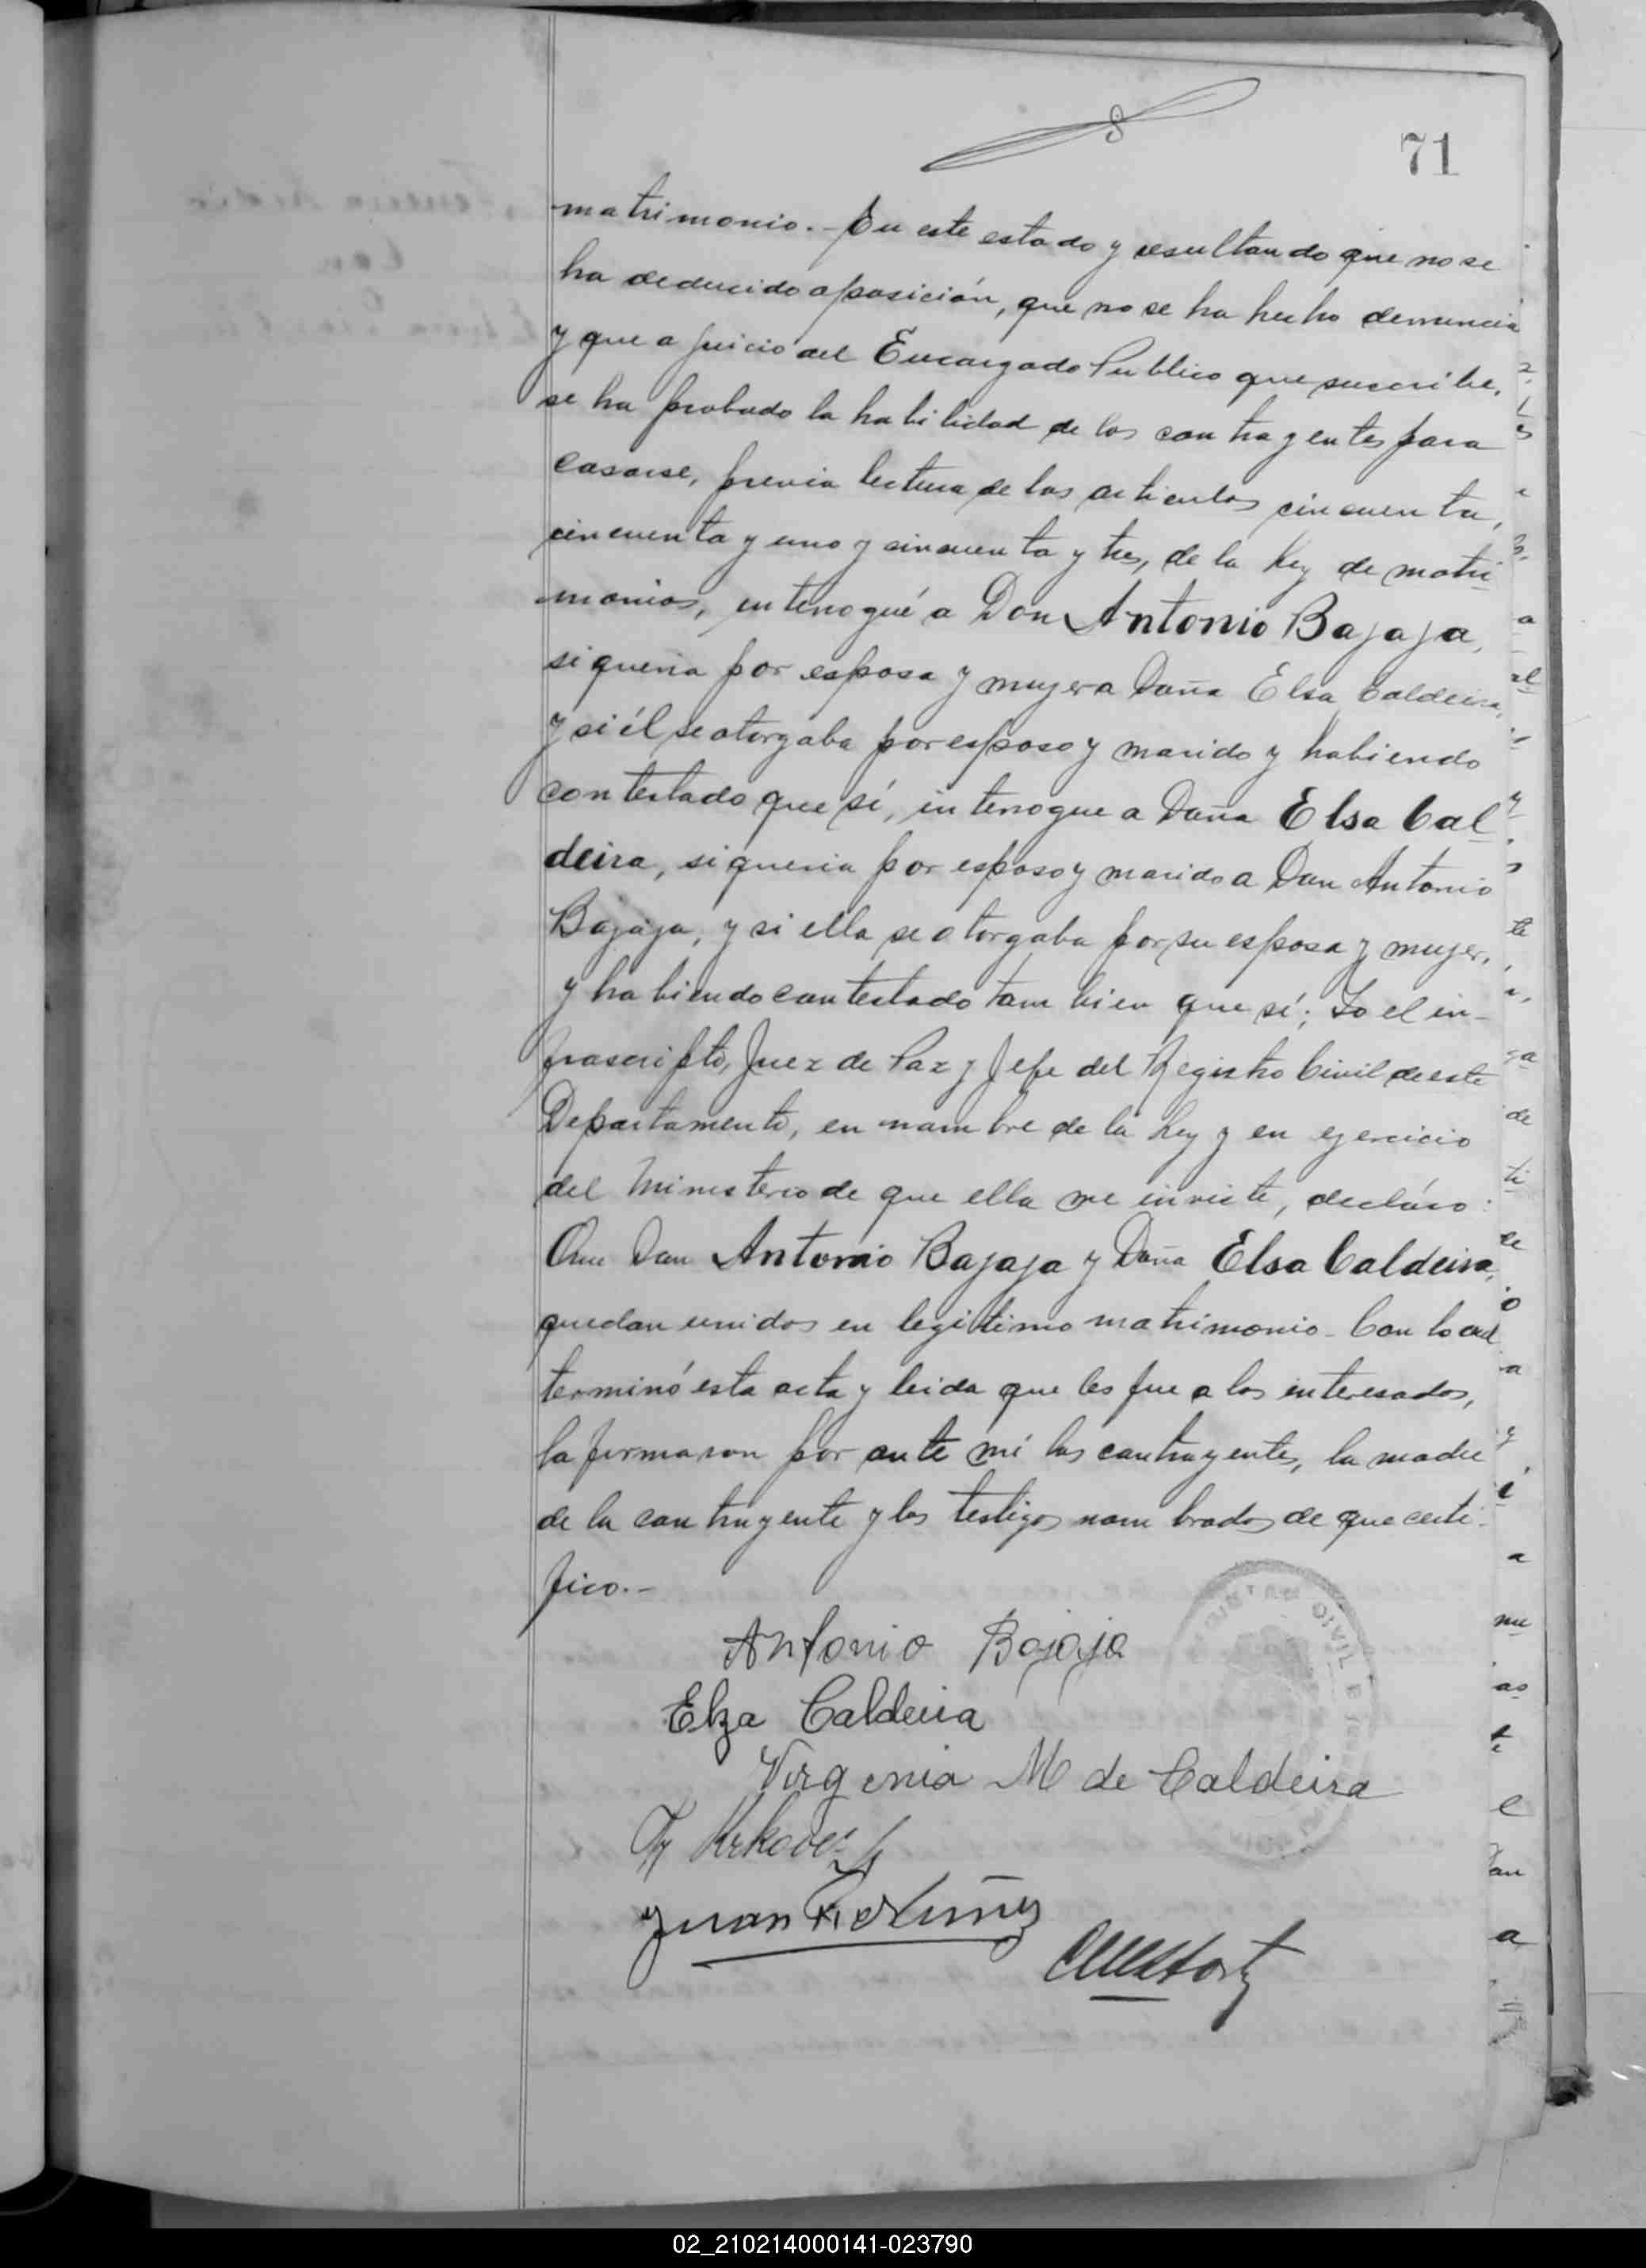 71
matrimonio.- En este estado y resultando que no se
ha deducido oposición, que no se ha hecho denuncia
y que a juicio del Encargado Publico que suscribe,
se ha probado la habilidad de los contrayentes para
casarse, previa lectura de los articulos cincuenta,
cincuenta y uno y cincuenta y tres, de la Ley de matri
monios, interrogué a Don Antonio Bajaja,
si queria por esposa y mujer a Doña Elsa Caldeira,
y si él se otorgaba por esposo y marido y habiendo
contestado que sí, interrogue a Doña Elsa Cal
deira, si queria por esposo y marido a Don Antonio
Bajaja, y si ella se otorgaba por su esposa y mujer,
y habiendo contestado tambien que sí; Yo el in-
frascripto, Juez de Paz y Jefe del Registro Civil de este
Departamento, en nombre de la Ley y en ejercicio
del Ministerio de que ella me inviste, decláro:
Que Don Antonio Bajaja y Doña Elsa Caldeira,
quedan unidos en legitimo matrimonio - Con lo cual
terminó esta acta y leida que les fue a los interesados,
la firmaron por ante mí los contrayentes, la madre
de la contrayente y los testigos nombrados de que certi-
fico.-
Antonio Bajaja
Elza Caldeira
Virgenia M de Caldeira
Juan Nuñez
02_210214000141-023790